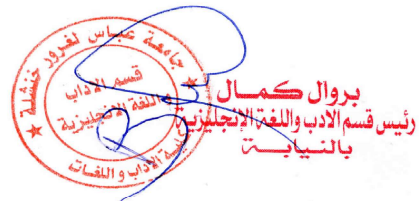 جامعة عباس لغرور خنشلة
قسم الاداب
واللغة الانجليزية
كلية الآداب و اللغات
بروال كمال
رئيس قسم الادب واللغة الإنجليزية
بالنيابة